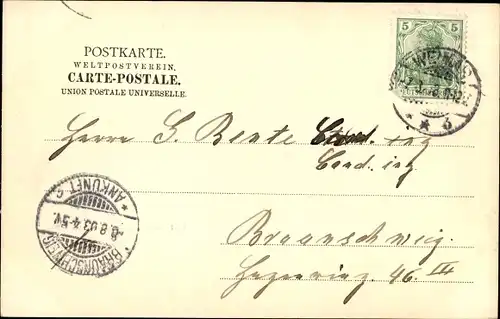 POSTKARTE.
WELTPOSTVEREIN.
CARTE-POSTALE.
UNION POSTALE UNIVERSELLE.
5 5
WEIMAR
* * 3
Herrn G. Bente ing
Cand. ing.
Braunschweig.
46. III
BRAUNSCHWEIG
8.8.03.4-5N.
* ANKUNFT